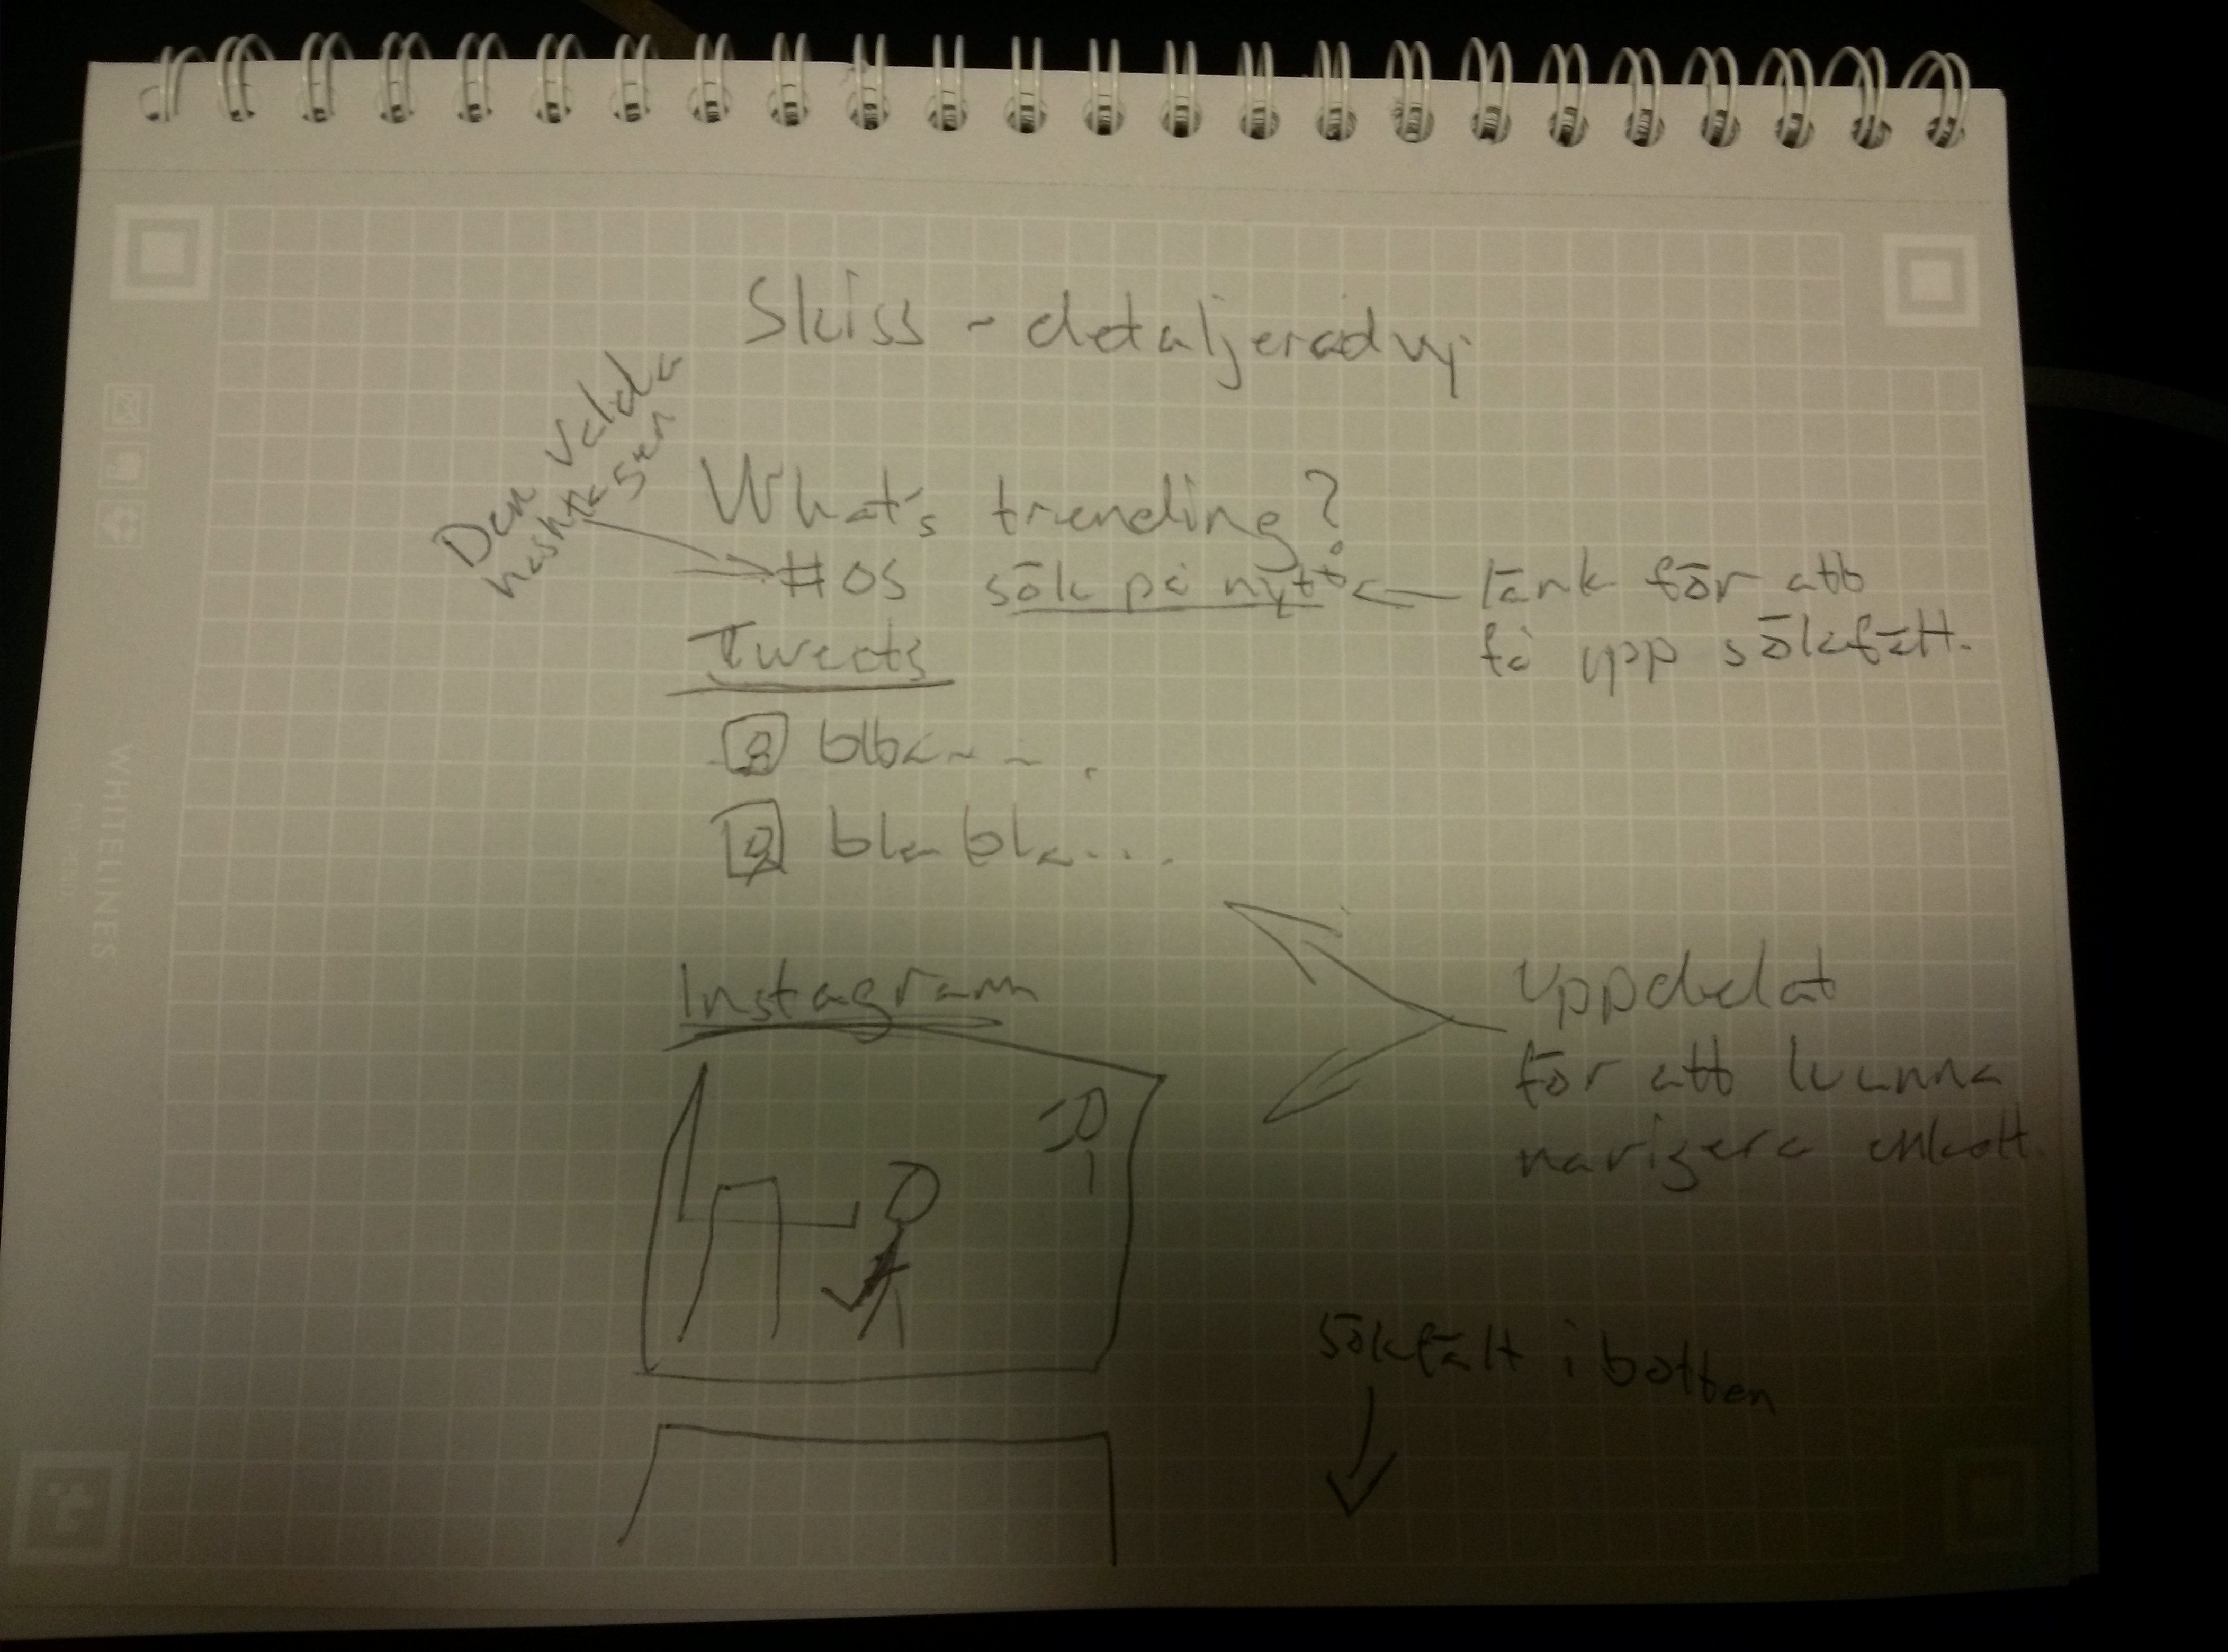 Skiss - detaljerad vy
Den valda
hashtagen
What's trending?
#OS sök på nytt?
länk för att
få upp sökfält.
Tweets
blba - - .
bla bla...
Instagram
Uppdelat
för att kunna
navigera enkelt.
sökfält i botten
WHITELINES